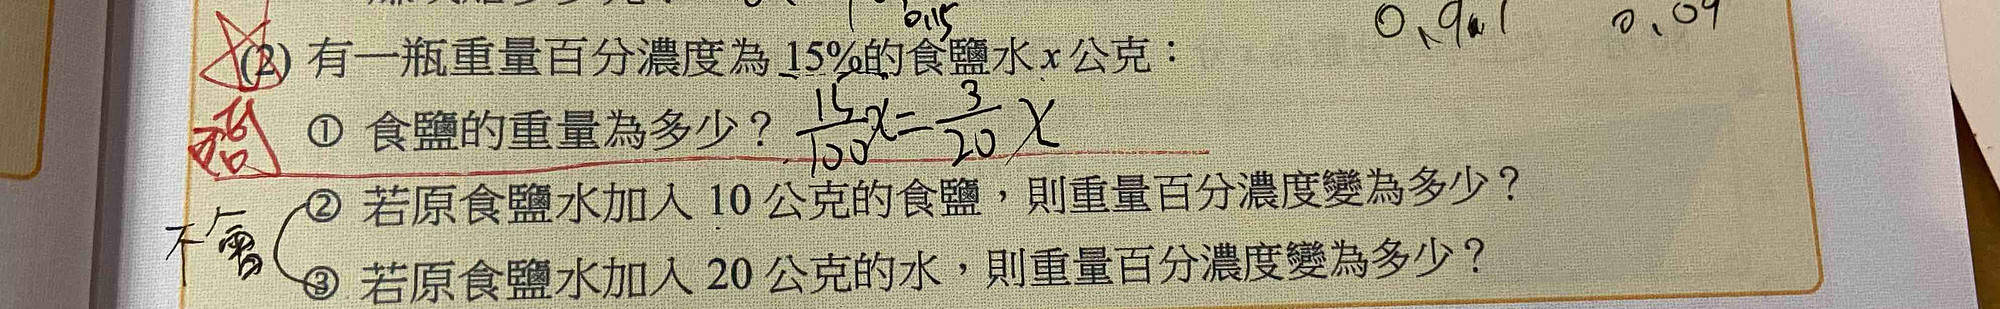 0.15
0.9 0.09
(2) 有一瓶重量百分濃度為 15%的食鹽水 x 公克：
① 食鹽的重量為多少？ 15/100 x = 3/20 x
② 若原食鹽水加入 10 公克的食鹽，則重量百分濃度變為多少？
不會
③ 若原食鹽水加入 20 公克的水，則重量百分濃度變為多少？